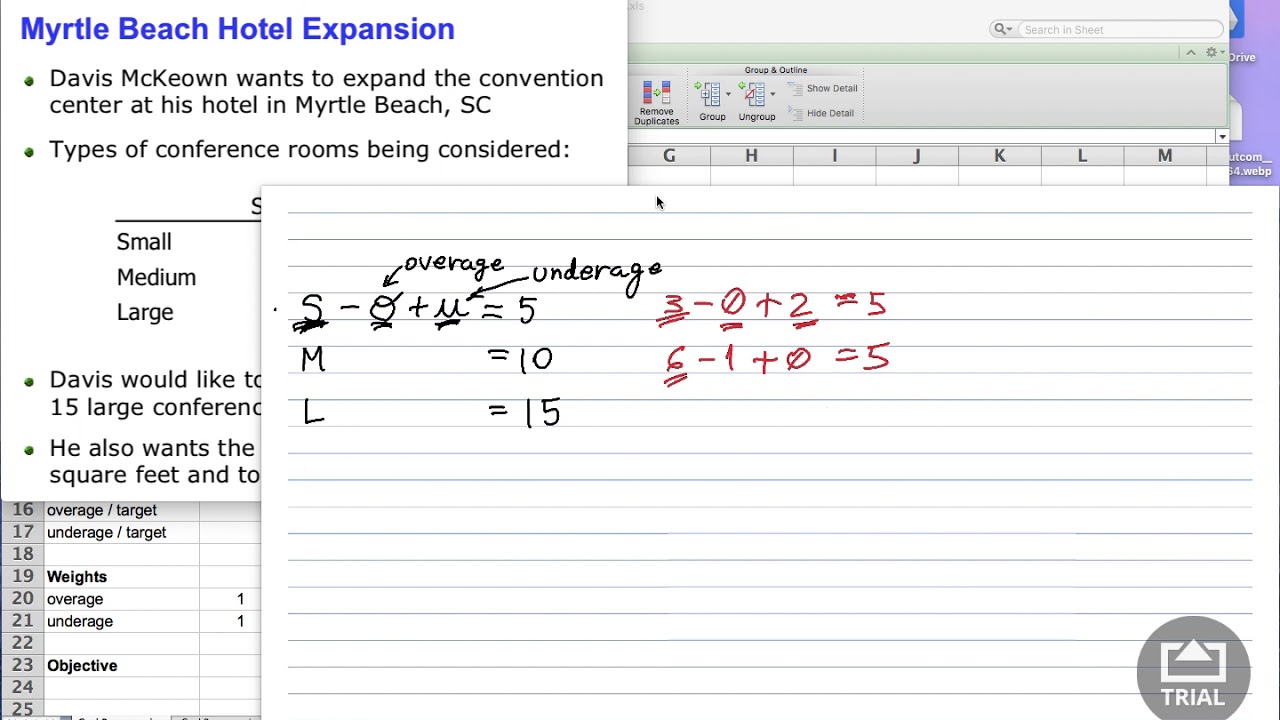 Myrtle Beach Hotel Expansion
Davis McKeown wants to expand the convention
center at his hotel in Myrtle Beach, SC
Types of conference rooms being considered:
S
Small
Medium
Large
Davis would like to
15 large conferenc
He also wants the
square feet and to
.xls
Search in Sheet
Group & Outline
Remove
Duplicates
Group
Ungroup
Show Detail
Hide Detail
Drive
utcom__
64.webp
G H I J K L M
overage
underage
S - O + u = 5
M = 10
L = 15
3 - 0 + 2 = 5
6 - 1 + 0 = 5
16 overage / target
17 underage / target
18
19 Weights
20 overage 1
21 underage 1
22
23 Objective
24
25
TRIAL